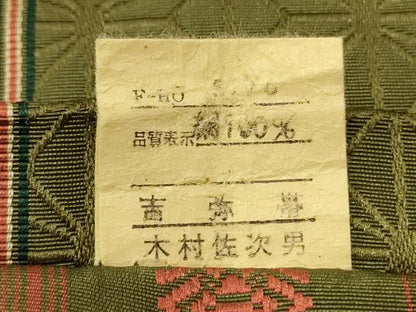 F-HO
品質表示 絹100%
吉弥帯
木村佐次男